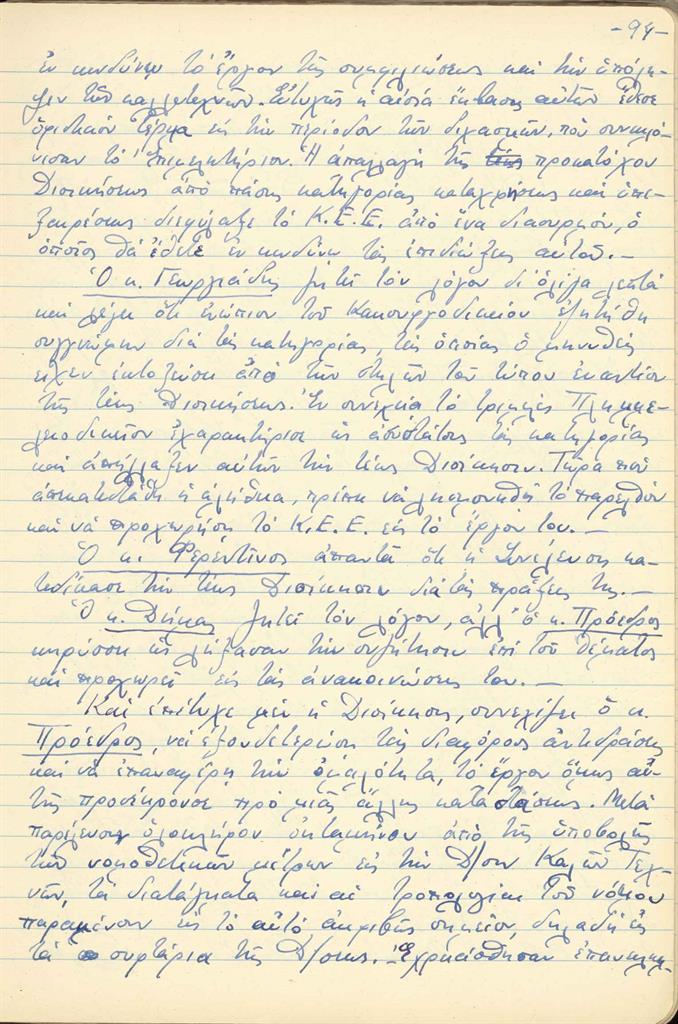 -94-
ἐν κινδύνῳ τὸ ἔργον τῆς συμφιλιώσεως καὶ τὴν ὑπόλη-
ψιν τῶν καλλιτεχνῶν. Εὐτυχῶς ἡ αἰσία ἔκβασις αὐτῶν ἔθεσε
ὁριστικὸν τέρμα εἰς τὴν περίοδον τῶν διχασμῶν, ποὺ συνεκλό-
νισαν τὸ Ἐπιμελητήριον. Ἡ ἀπαλλαγὴ τῆς τέως προκατόχου
Διοικήσεως ἀπὸ πάσης κατηγορίας καταχρήσεως καὶ ὑπε-
ξαιρέσεως διεφύλαξε τὸ Κ.Ε.Ε. ἀπὸ ἕνα διασυρμόν, ὁ
ὁποῖος θὰ ἔθετε ἐν κινδύνῳ τὰς ἐπιδιώξεις αὐτοῦ.—
Ὁ κ. Γεωργιάδης ζητεῖ τὸν λόγον δι' ὀλίγα λεπτὰ
καὶ λέγει ὅτι ἐνώπιον τοῦ Κακουργοδικείου ἐζητήθη
συγγνώμην διὰ τὰς κατηγορίας, τὰς ὁποίας ὁ μηνυθεὶς
εἶχεν ἐκτοξεύσει ἀπὸ τῶν στηλῶν τοῦ τύπου ἐναντίον
τῆς τέως Διοικήσεως. Ἐν συνεχείᾳ τὸ τριμελὲς Πλημμε-
λειοδικεῖον ἐχαρακτήρισε ὡς ἀσυστάτους τὰς κατηγορίας
καὶ ἀπήλλαξεν αὐτῶν τὴν τέως Διοίκησιν. Τώρα ποὺ
ἀποκατεστάθη ἡ ἀλήθεια, πρέπει νὰ λησμονηθῇ τὸ παρελθὸν
καὶ νὰ προχωρήσῃ τὸ Κ.Ε.Ε. εἰς τὸ ἔργον του.—
Ὁ κ. Φερεντῖνος ἀπαντᾶ ὅτι ἡ Συνέλευσις κα-
τεδίκασε τὴν τέως Διοίκησιν διὰ τὰς πράξεις της.—
Ὁ κ. Δήμας ζητεῖ τὸν λόγον, ἀλλ' ὁ κ. Πρόεδρος
κηρύσσει ὡς λήξασαν τὴν συζήτησιν ἐπὶ τοῦ θέματος
καὶ προχωρεῖ εἰς τὰς ἀνακοινώσεις του.—
Καὶ ἐπέτυχε μὲν ἡ Διοίκησις, συνεχίζει ὁ κ.
Πρόεδρος, νὰ ἐξουδετερώσῃ τὰς διαφόρους ἀντιδράσεις
καὶ νὰ ἐπαναφέρῃ τὴν ὁμαλότητα, τὸ ἔργον ὅμως αὐ-
τῆς προσέκρουσε πρὸ μιᾶς ἄλλης καταστάσεως. Μετὰ
παρέλευσιν ὁλοκλήρου ὀκταμήνου ἀπὸ τῆς ὑποβολῆς
τῶν νομοθετικῶν μέτρων εἰς τὴν Δ/σιν Καλῶν Τεχ-
νῶν, τὰ διατάγματα καὶ αἱ τροπολογίαι τοῦ νόμου
παραμένουν εἰς τὸ αὐτὸ ἀκριβῶς σημεῖον, δηλαδὴ εἰς
τὰ συρτάρια τῆς Δ/σεως. Ἐχρειάσθησαν ἐπανειλημ-